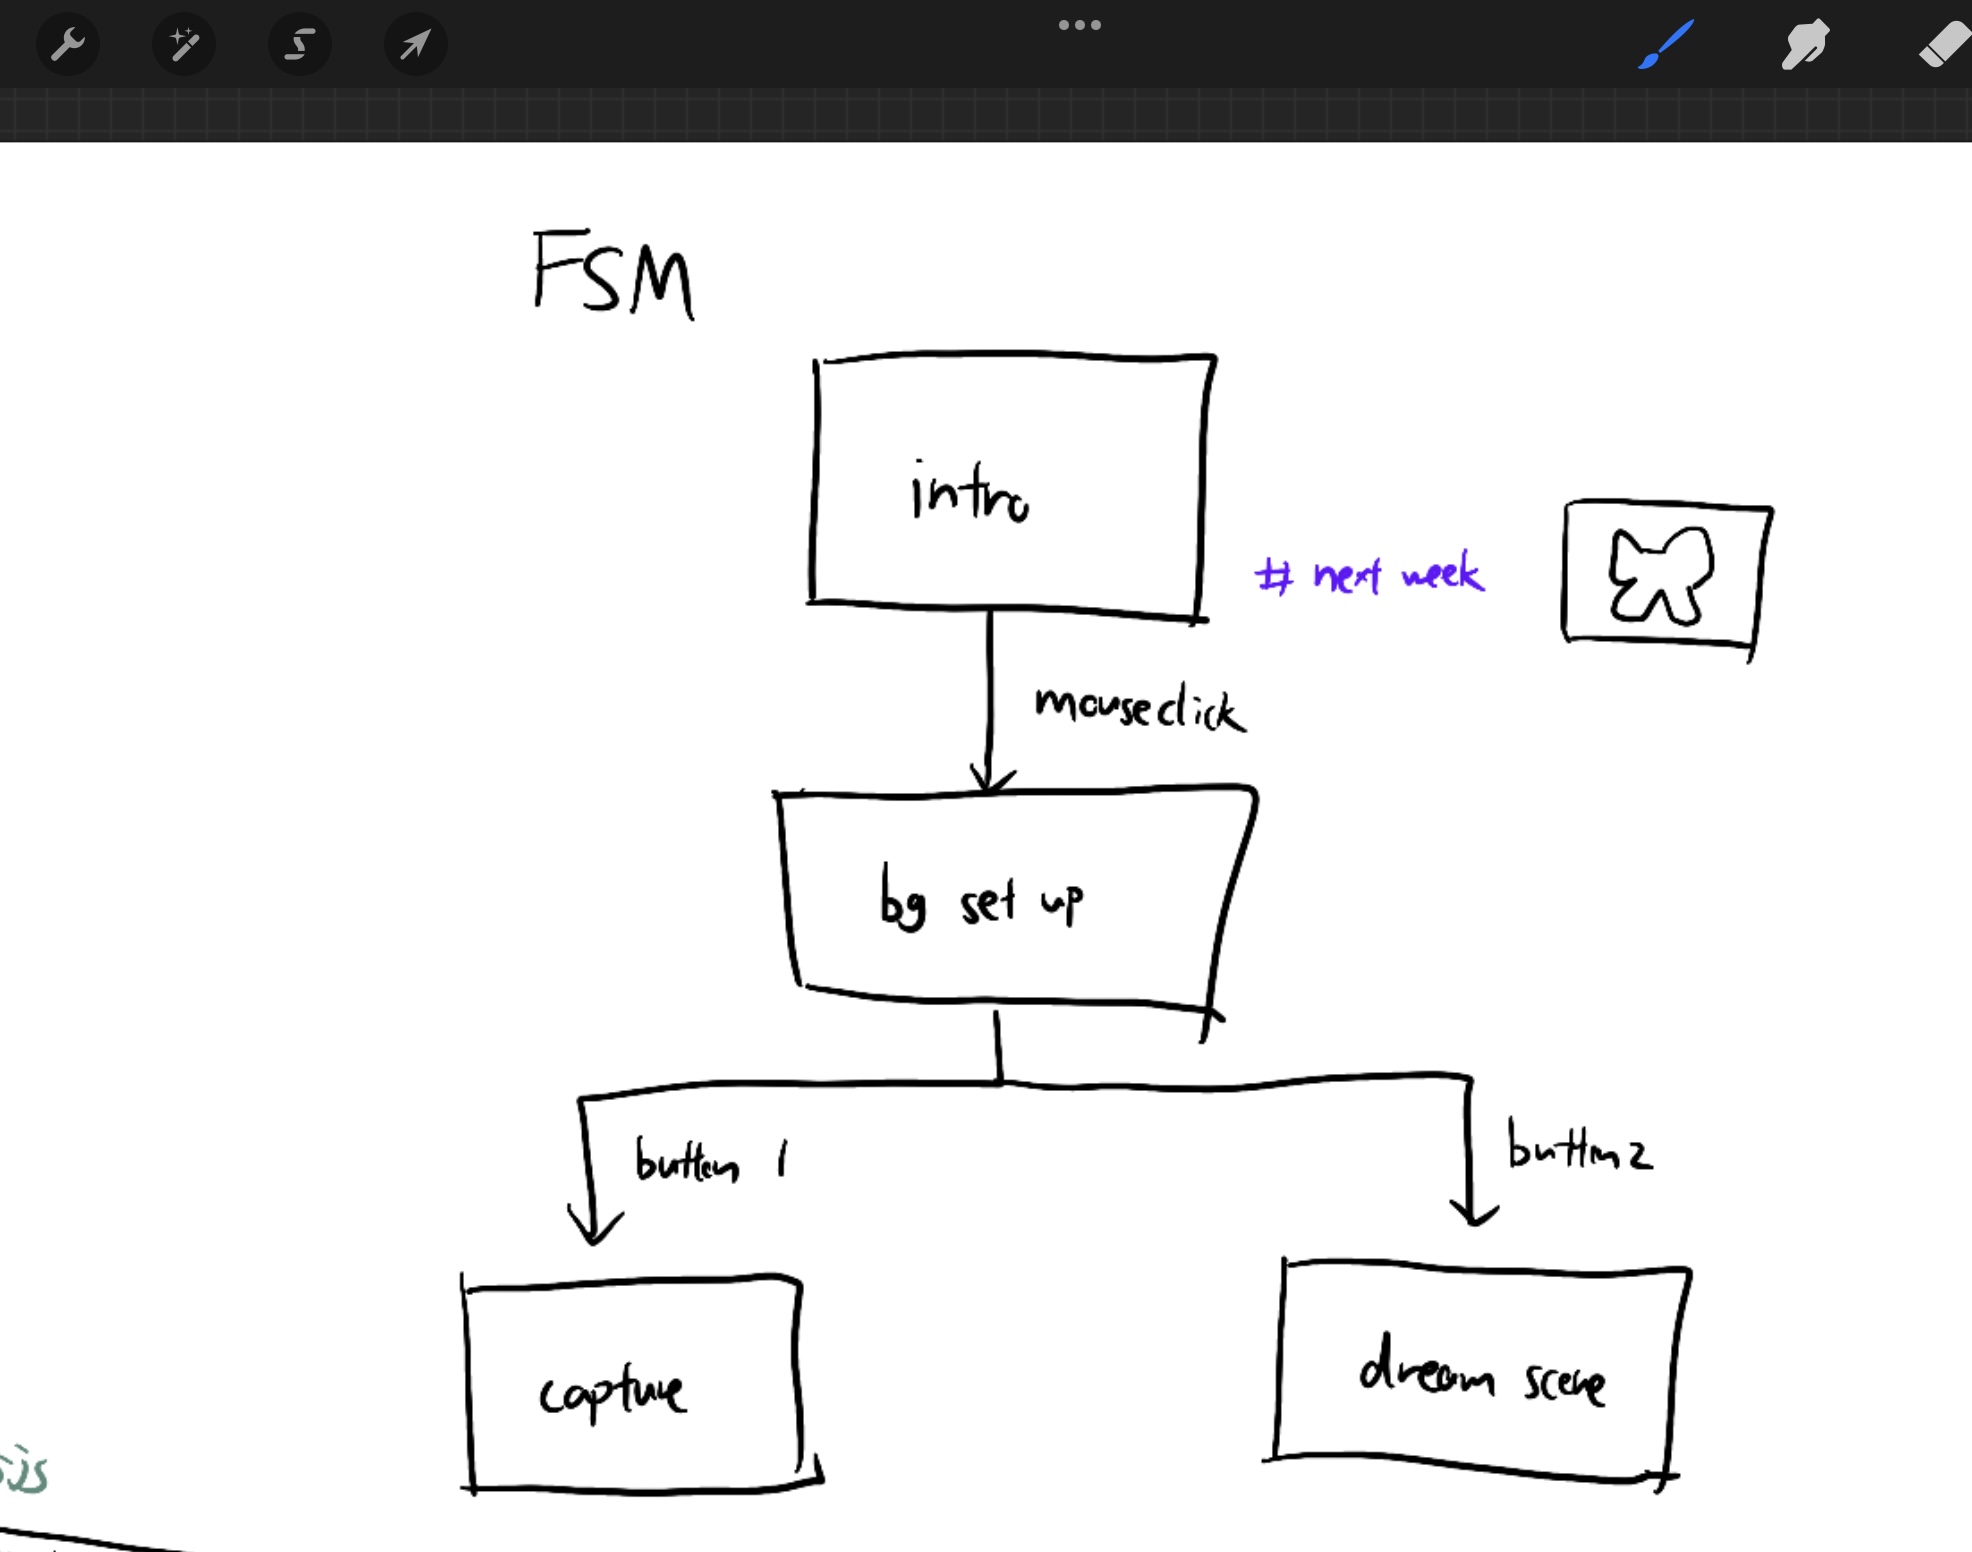 FSM
intro
# next week
mouseclick
bg set up
button 1
button 2
capture
dream scene